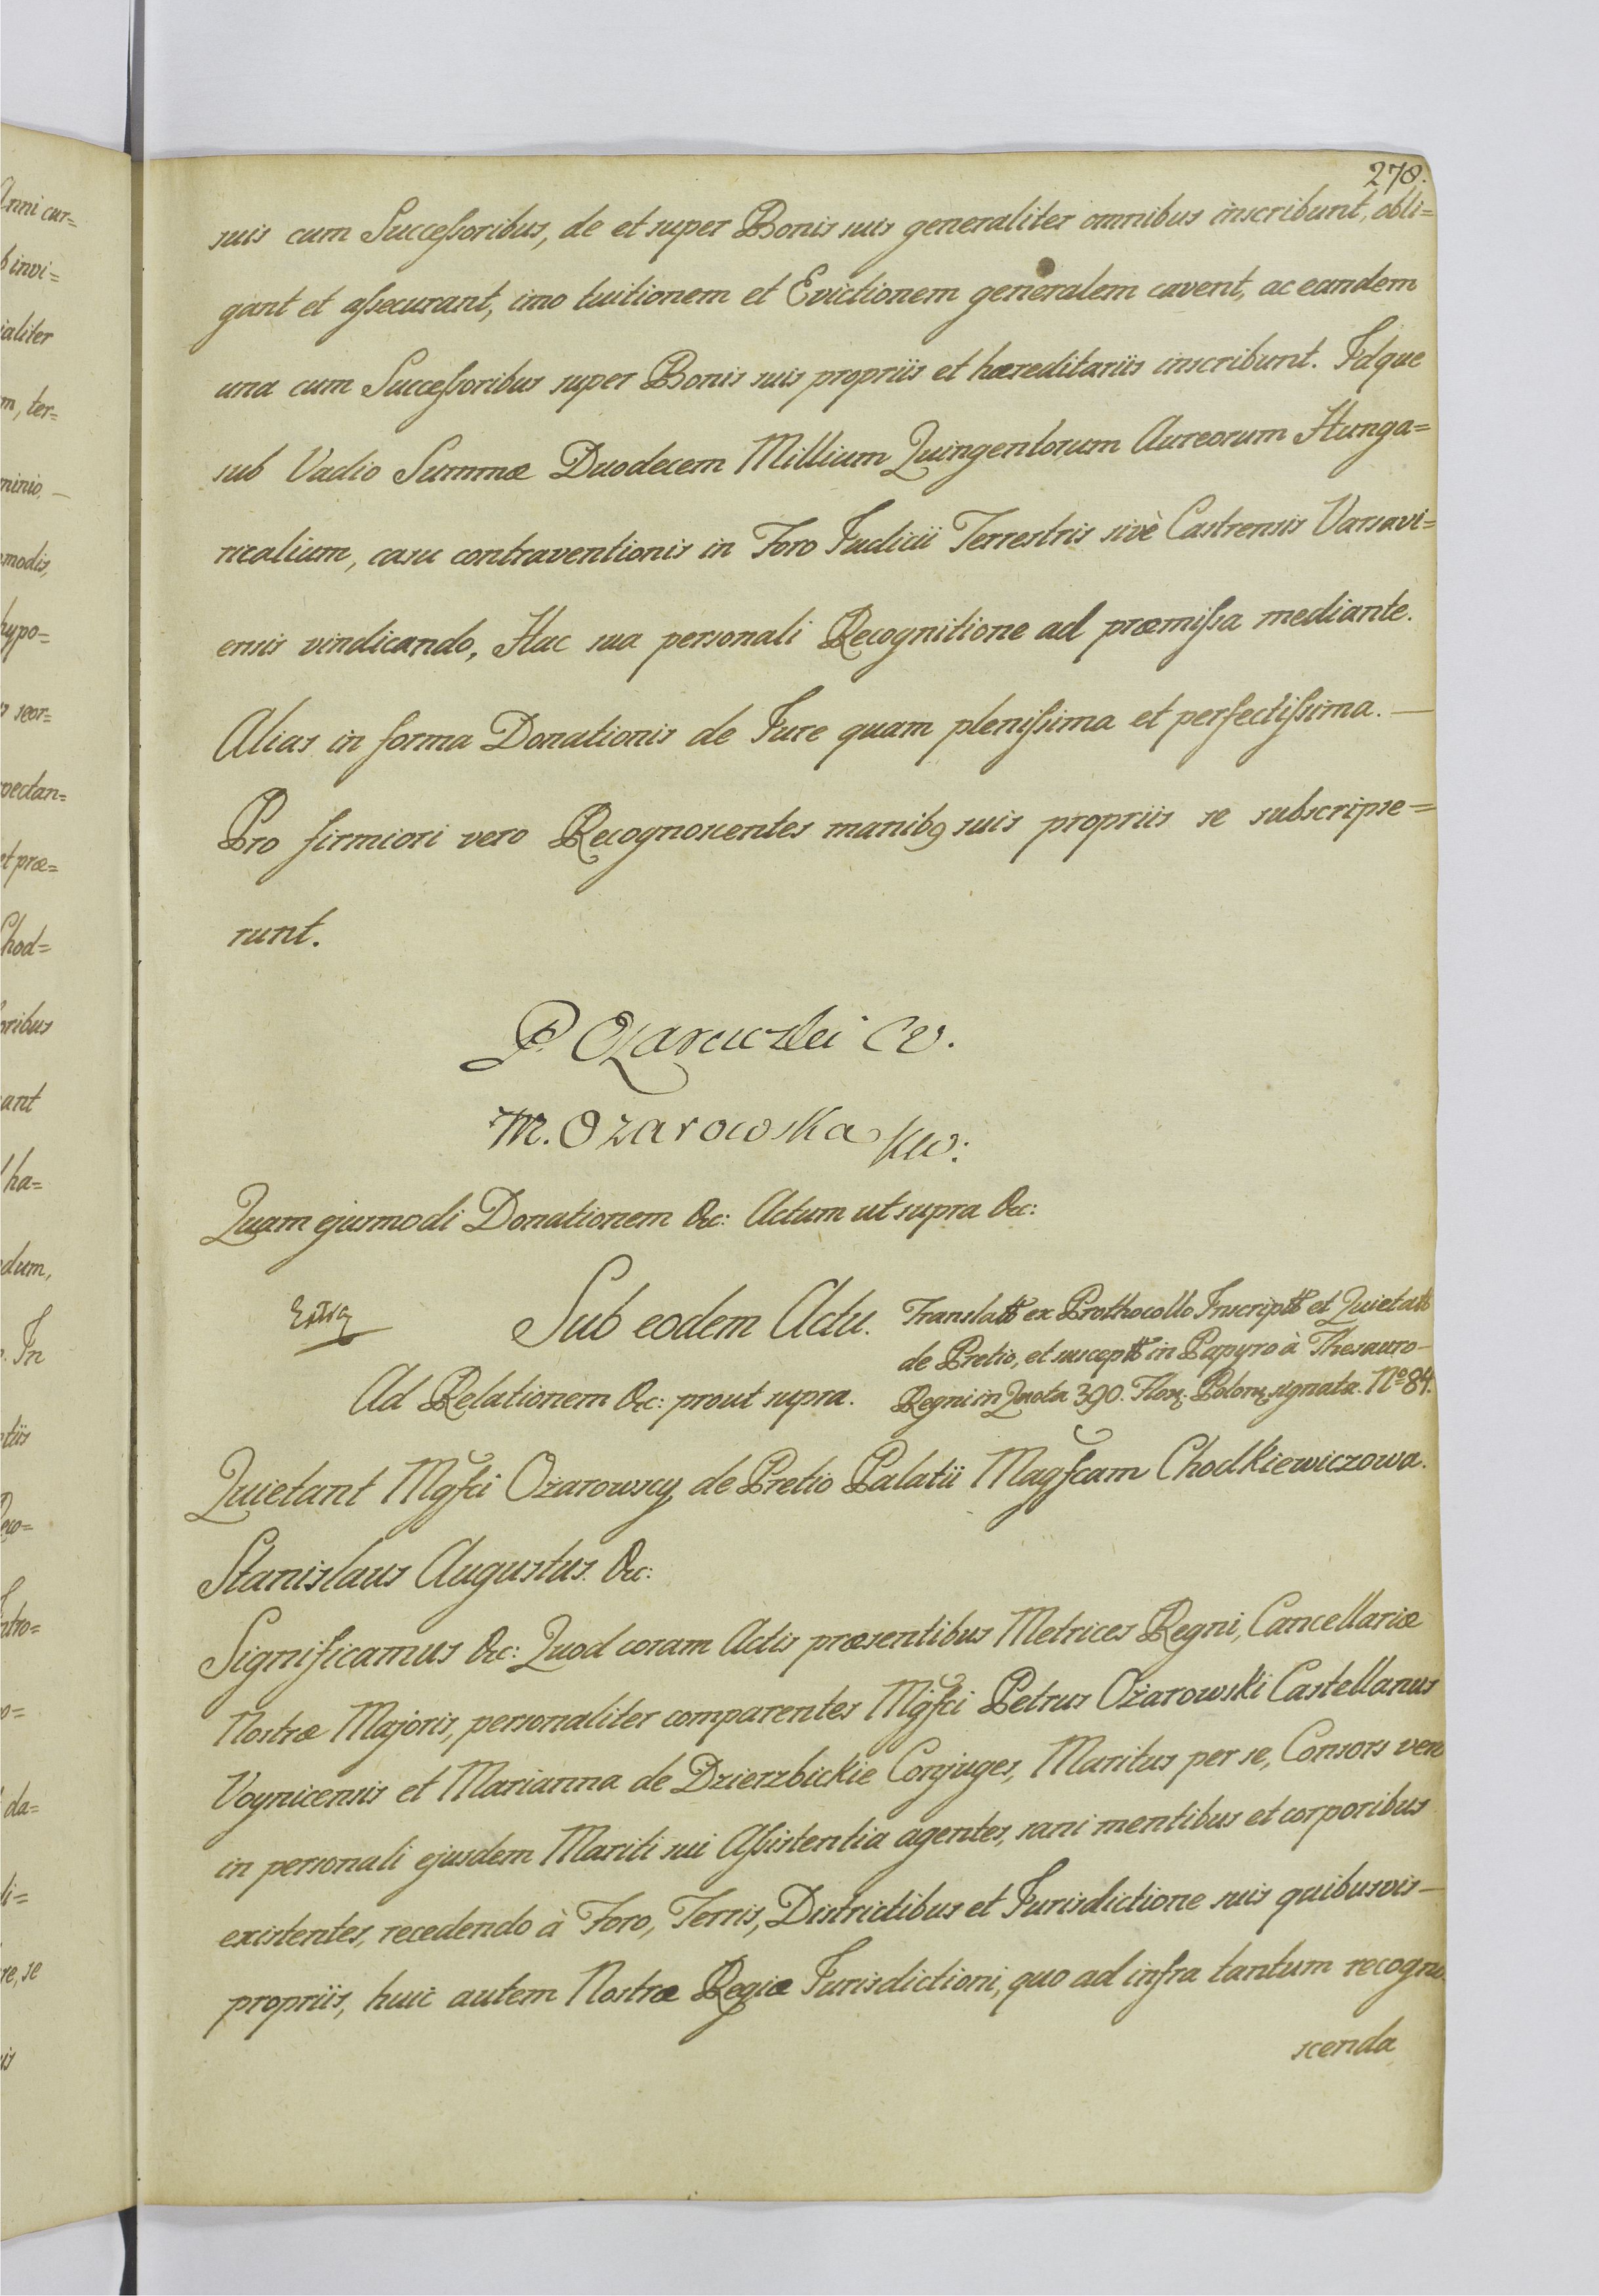 278.
suis cum Successoribus, de et super Bonis suis generaliter omnibus inscribunt, obli=
gant et assecurant, imo tuitionem et Evictionem generalem cavent, ac eandem
una cum Successoribus super Bonis suis propriis et hæreditariis inscribunt. Idque
sub Vadio Summæ Duodecem Millium Quingentorum Aureorum Hunga=
ricalium, casu contraventionis in Foro Judicii Terrestris sivè Castrensis Varsavi=
ensis vindicando, Hac sua personali Recognitione ad præmissa mediante.
Alias in forma Donationis de Jure quam plenissima et perfectissima. —
Pro firmiori vero Recognoscentes manibꝰ suis propriis se subscripse=
runt.
P. Ożarowski CW.
M. Ozarowska KW:
Quam ejusmodi Donationem &c: Actum ut supra &c:
Sub eodem Actu.
Translatt ex Prothocollo Inscriptt et Quietatt
de Pretio, et susceptt in Papyro à Thesauro-
Regni in Quota 390. Flor. Polon. signata. No 84.
Ad Relationem &c: prout supra.
Quietant Mgfci Ożarowscy de Pretio Palatii Magfcam Chodkiewiczowa.
Stanislaus Augustus. &c:
Significamus &c: Quod coram Actis præsentibus Metrices Regni, Cancellariæ
Nostræ Majoris, personaliter comparentes Mgfci Petrus Ożarowski Castellanus
Voynicensis et Marianna de Dzierzbickie Conjuges, Maritus per se, Consors vero
in personali ejusdem Mariti sui Assistentia agentes, sani mentibus et corporibus
existentes, recedendo à Foro, Terris, Districtibus et Jurisdictione suis quibusvis —
propriis, huic autem Nostræ Regiæ Jurisdictioni, quo ad infra tantum recogno=
scenda